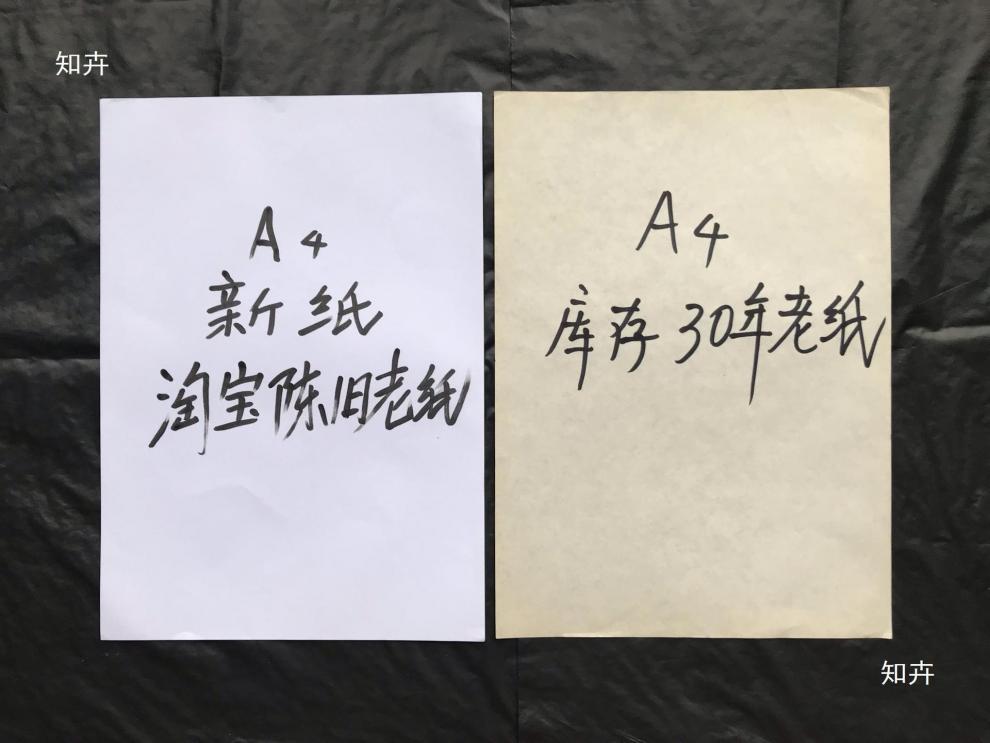 知卉
A4
新纸
淘宝陈旧老纸
A4
库存30年老纸
知卉